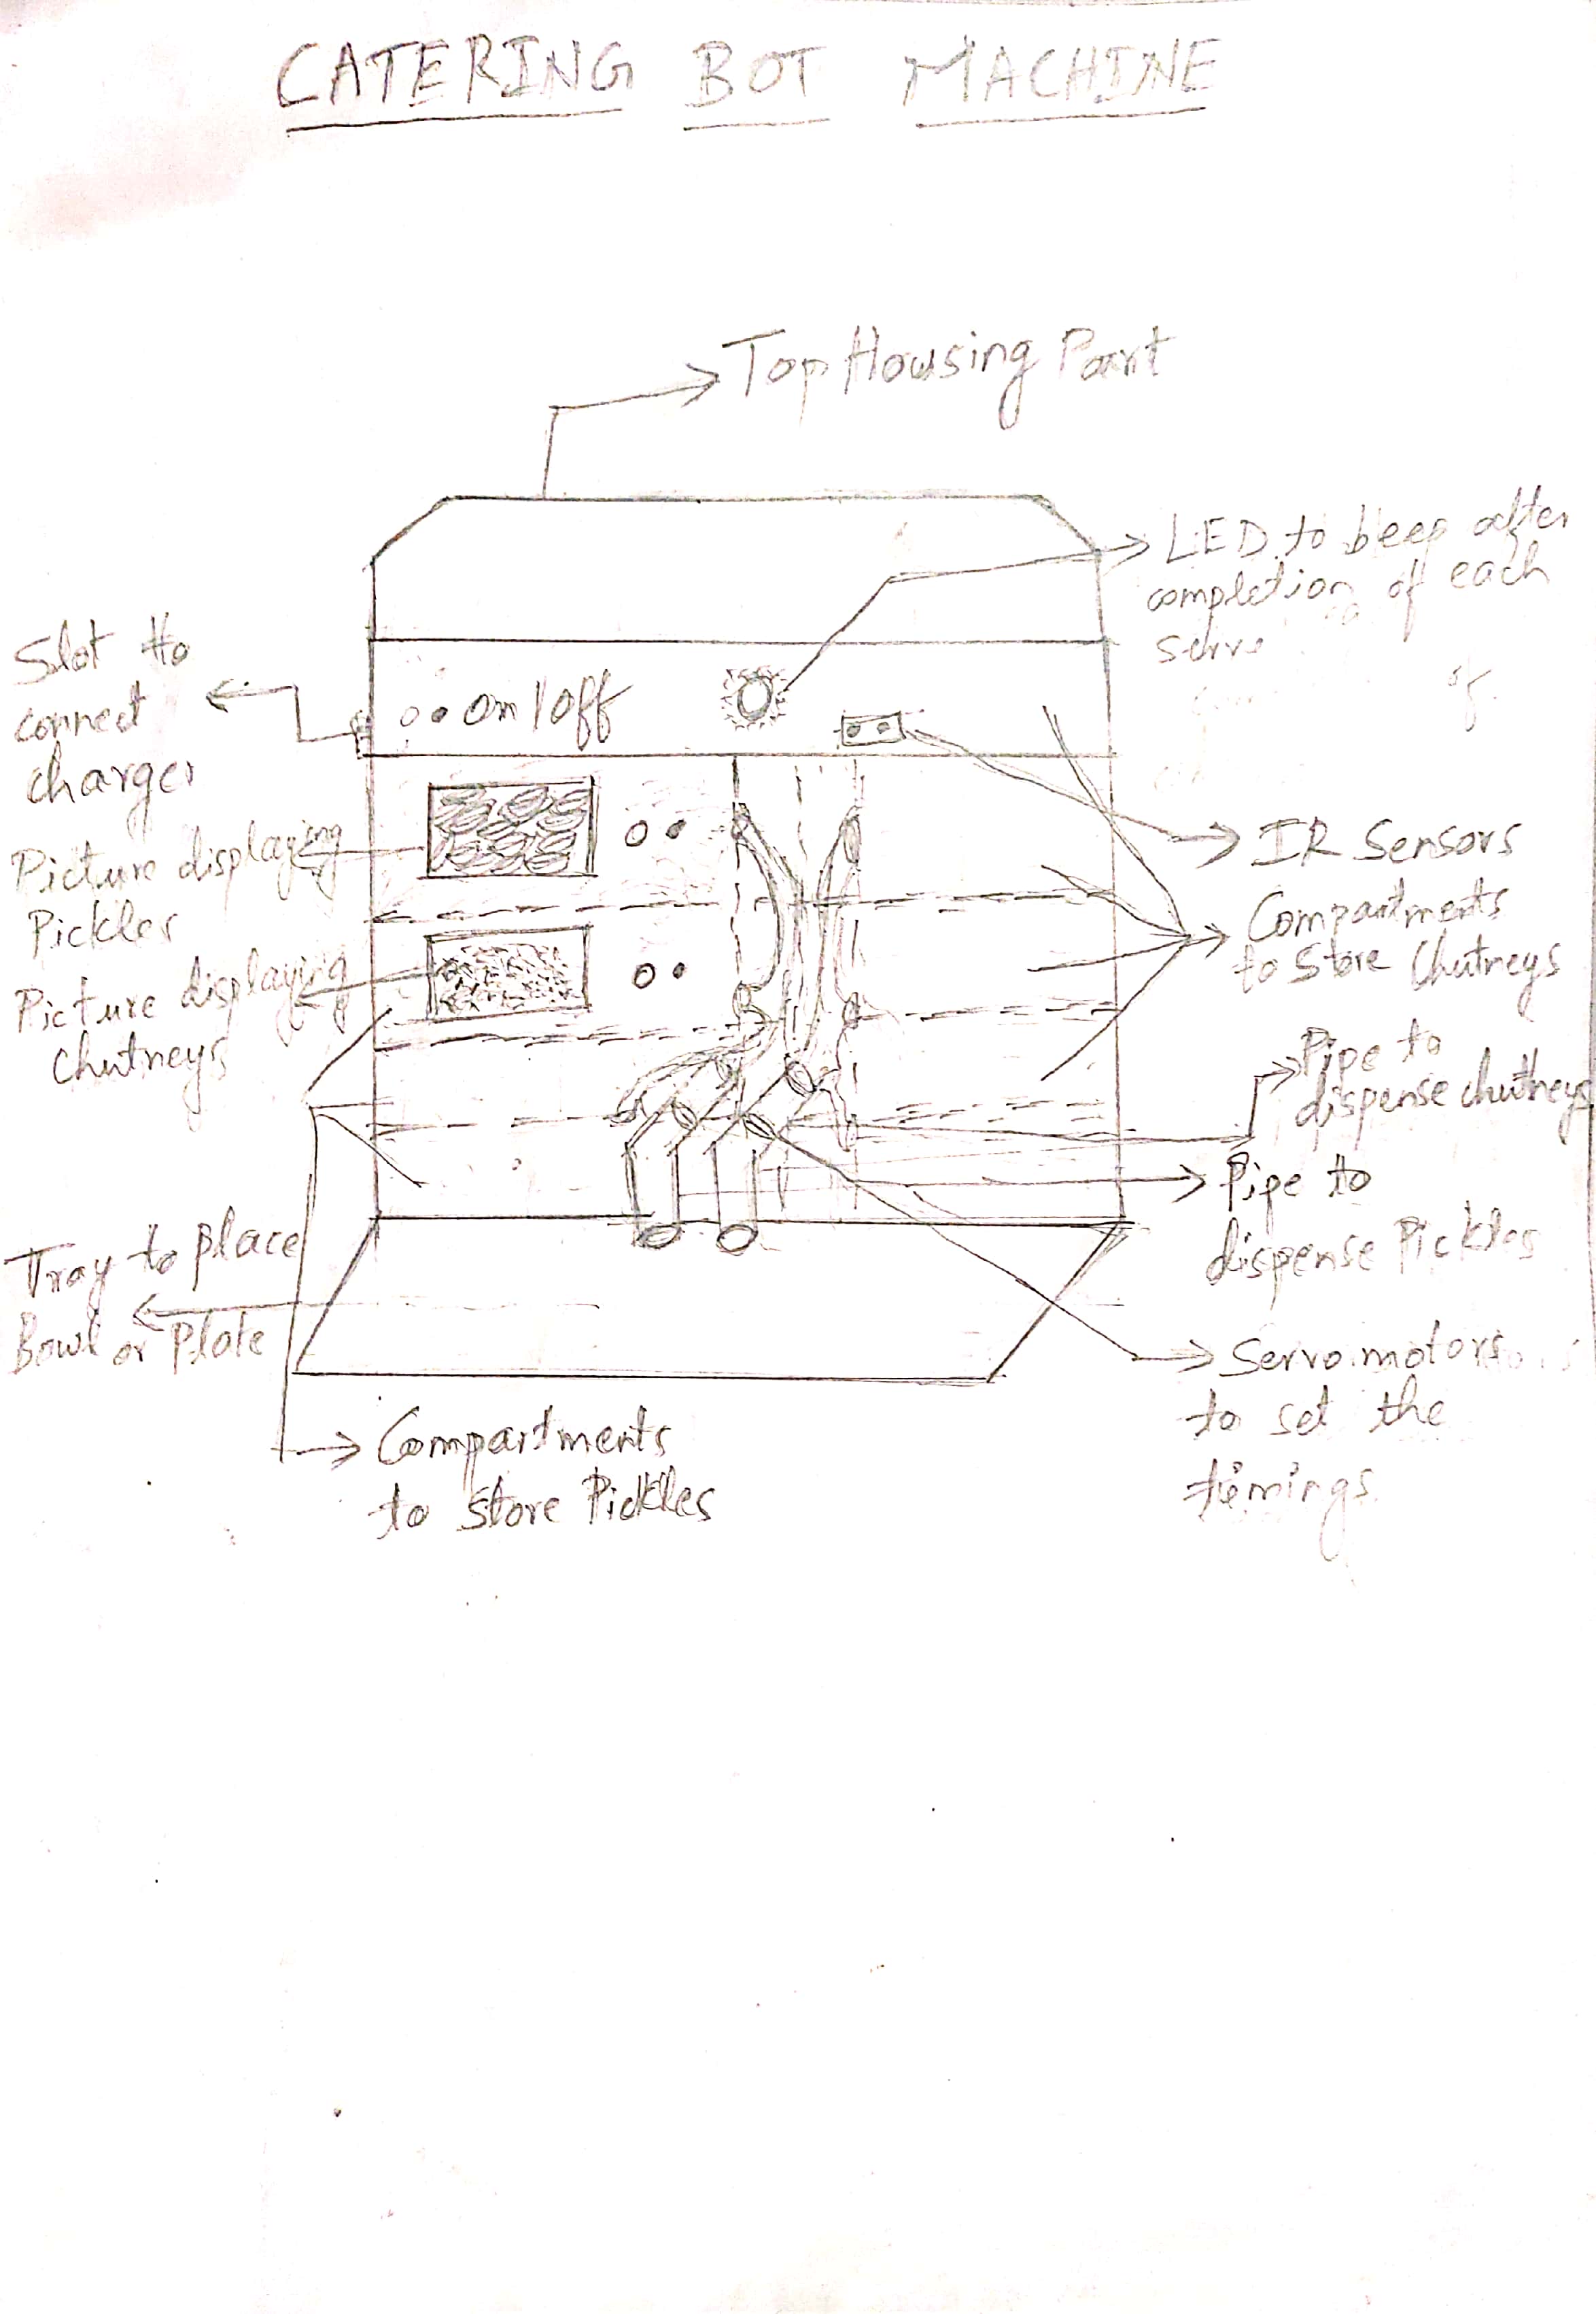 CATERING BOT MACHINE
Top Housing Part
LED to beep after
completion of each
serve
Slot to
connect
charger
on/off
Picture displaying
Pickles
IR Sensors
Compartments
to store Chutneys
Picture displaying
Chutneys
Pipe to
dispense chutneys
Pipe to
dispense Pickles
Tray to place
Bowl or Plate
Servo motors
to set the
timings
Compartments
to store Pickles